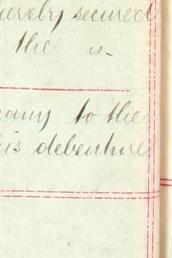 hereby secured
the is
any to the
is debenture